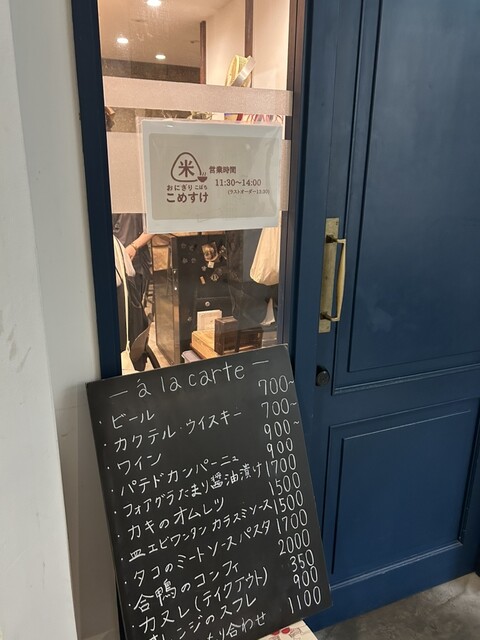 米
おにぎり こばち
こめすけ
営業時間
11:30〜14:00
(ラストオーダー13:30)
— à la carte —
・ビール 700~
・カクテル・ウイスキー 700~
・ワイン 900~
・パテドカンパーニュ 900
・フォアグラたまり醤油漬け 1700
・カキのオムレツ 1500
・皿エビワンタン カラスミソース 1500
・タコのミートソースパスタ 1700
・合鴨のコンフィ 2000
・カヌレ(テイクアウト) 350
・オレンジのスフレ 900
り合わせ 1100